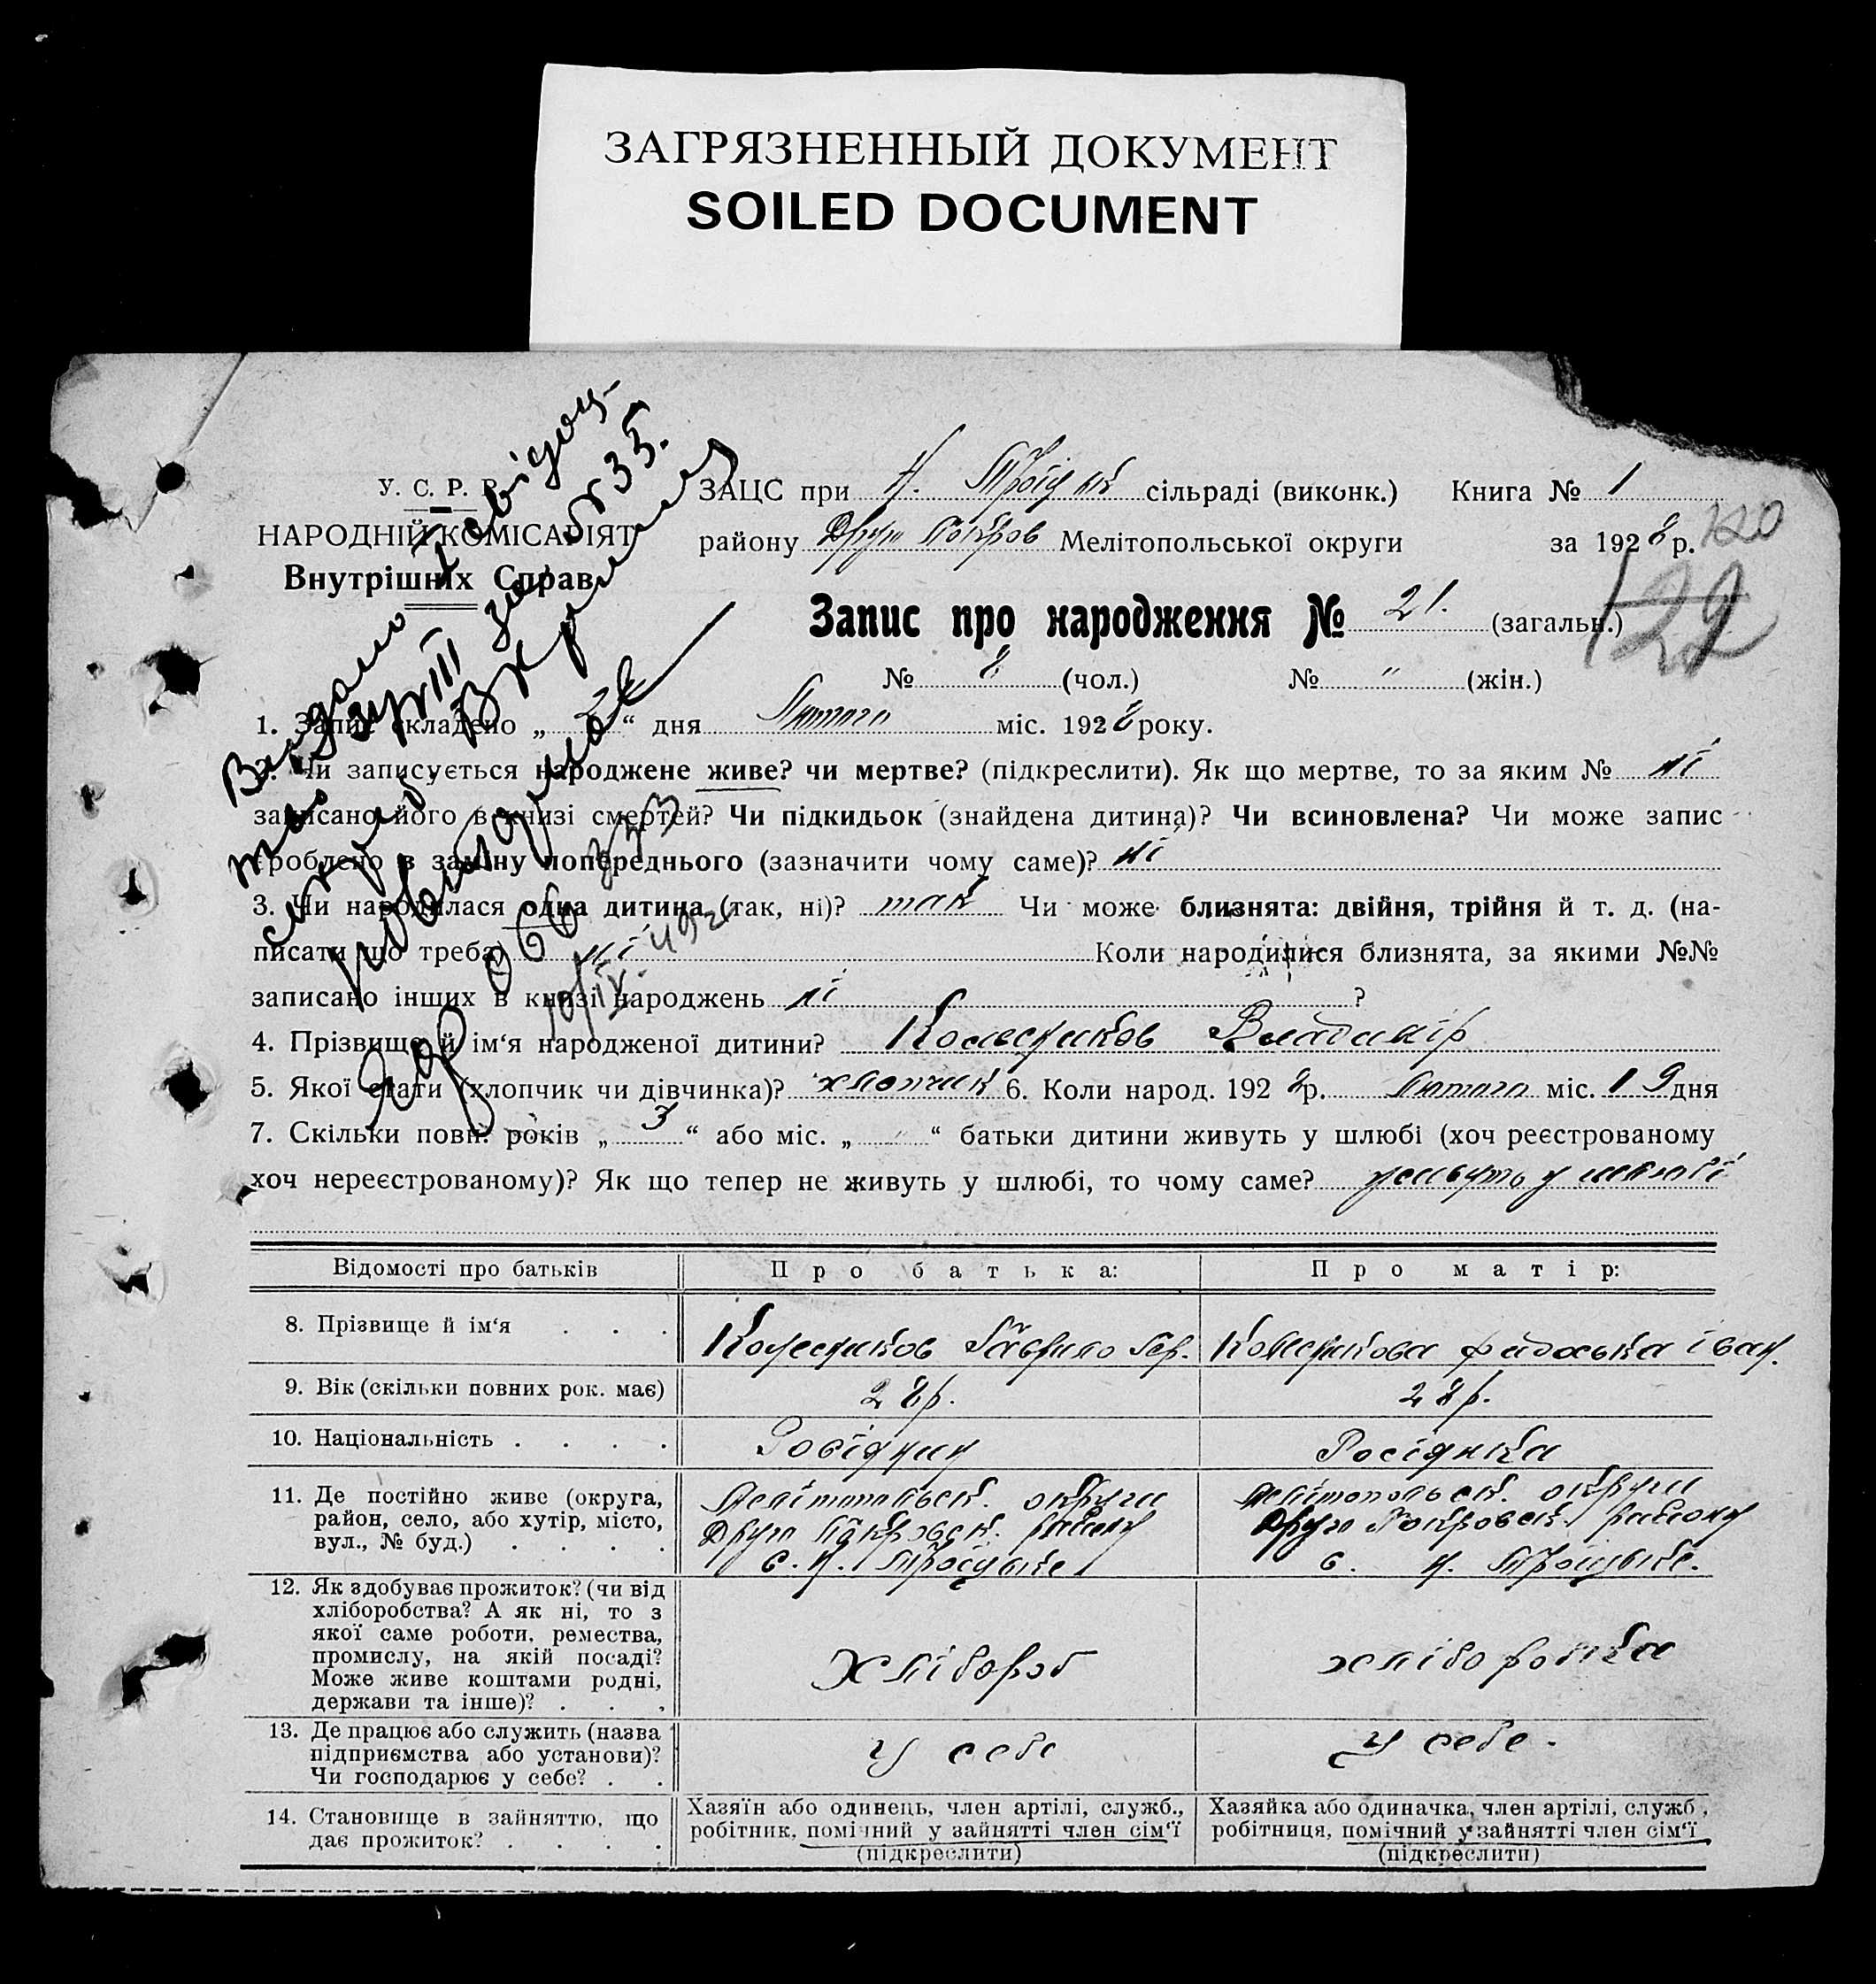 ЗАГРЯЗНЕННЫЙ ДОКУМЕНТ
SOILED DOCUMENT
У. С. Р. Р.
НАРОДНІЙ КОМІСАРІЯТ
Внутрішніх Справ
ЗАЦС при Н. Троїцькій сільраді (виконк.) Книга № 1
району Друг Покров Мелітопольської округи за 1928 р.
120
129
Запис про народження № 21. (загальн.)
№ 8 (чол.) № " (жін.)
Видано
№ 35.
1. Запис складено „ 24 “ дня Лютого міс. 1928 року.
2. Чи записується народжене живе? чи мертве? (підкреслити). Як що мертве, то за яким № ні
записано його в книзі смертей? Чи підкидьок (знайдена дитина)? Чи всиновлена? Чи може запис
зроблено в заміну попереднього (зазначити чому саме)? ні
3. Чи народилася одна дитина (так, ні)? так Чи може близнята: двійня, трійня й т. д. (на-
писати що треба) ні Коли народилися близнята, за якими №№
записано інших в книзі народжень ні ?
4. Прізвище й ім‘я народженої дитини? Колесников Владимір
5. Якої стати (хлопчик чи дівчинка)? хлопчик 6. Коли народ. 1928 р. Лютого міс. 19 дня
7. Скільки повн. років „ 3 “ або міс. „ “ батьки дитини живуть у шлюбі (хоч реєстрованому
хоч нереєстрованому)? Як що тепер не живуть у шлюбі, то чому саме? живуть у шлюбі
Відомості про батьків Про батька: Про матір:
8. Прізвище й ім‘я . . . Колесников Гаврило Колесникова Федоська Іван.
9. Вік (скільки повних рок. має) 28 р. 28 р.
10. Національність . . . . Росіянин Росіянка
11. Де постійно живе (округа, район, село, або хутір, місто, вул., № буд.) . . . .
Мелітопольськ. округи
Друго Покровськ. району
с. Н. Троїцьке
Мелітопольськ. округи
Друго Покровськ. району
с. Н. Троїцьке.
12. Як здобуває прожиток? (чи від
хліборобства? А як ні, то з
якої саме роботи, ремества,
промислу, на якій посаді?
Може живе коштами родні,
держави та інше)? . . .
Хлібороб хліборобка
13. Де працює або служить (назва
підприємства або установи)?
Чи господарює у себе? . .
У себе У себе.
14. Становище в зайняттю, що
дає прожиток? . . . .
Хазяїн або одинець, член артілі, служб.,
робітник, помічний у зайнятті член сім‘ї
(підкреслити)
Хазяйка або одиначка, член артілі, служб.,
робітниця, помічний у зайнятті член сім‘ї
(підкреслити)